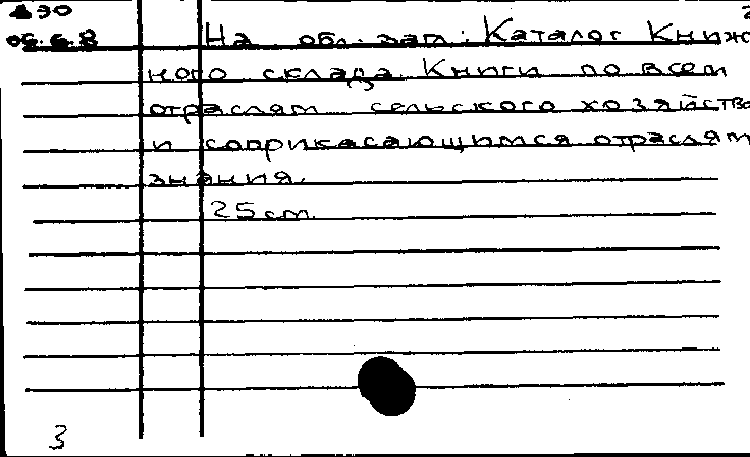 На обл. загл.: Каталог Книж
ного склада. Книги по всем
отраслям сельского хозяйства
и соприкасающимся отраслям
знания.
25 см.
3